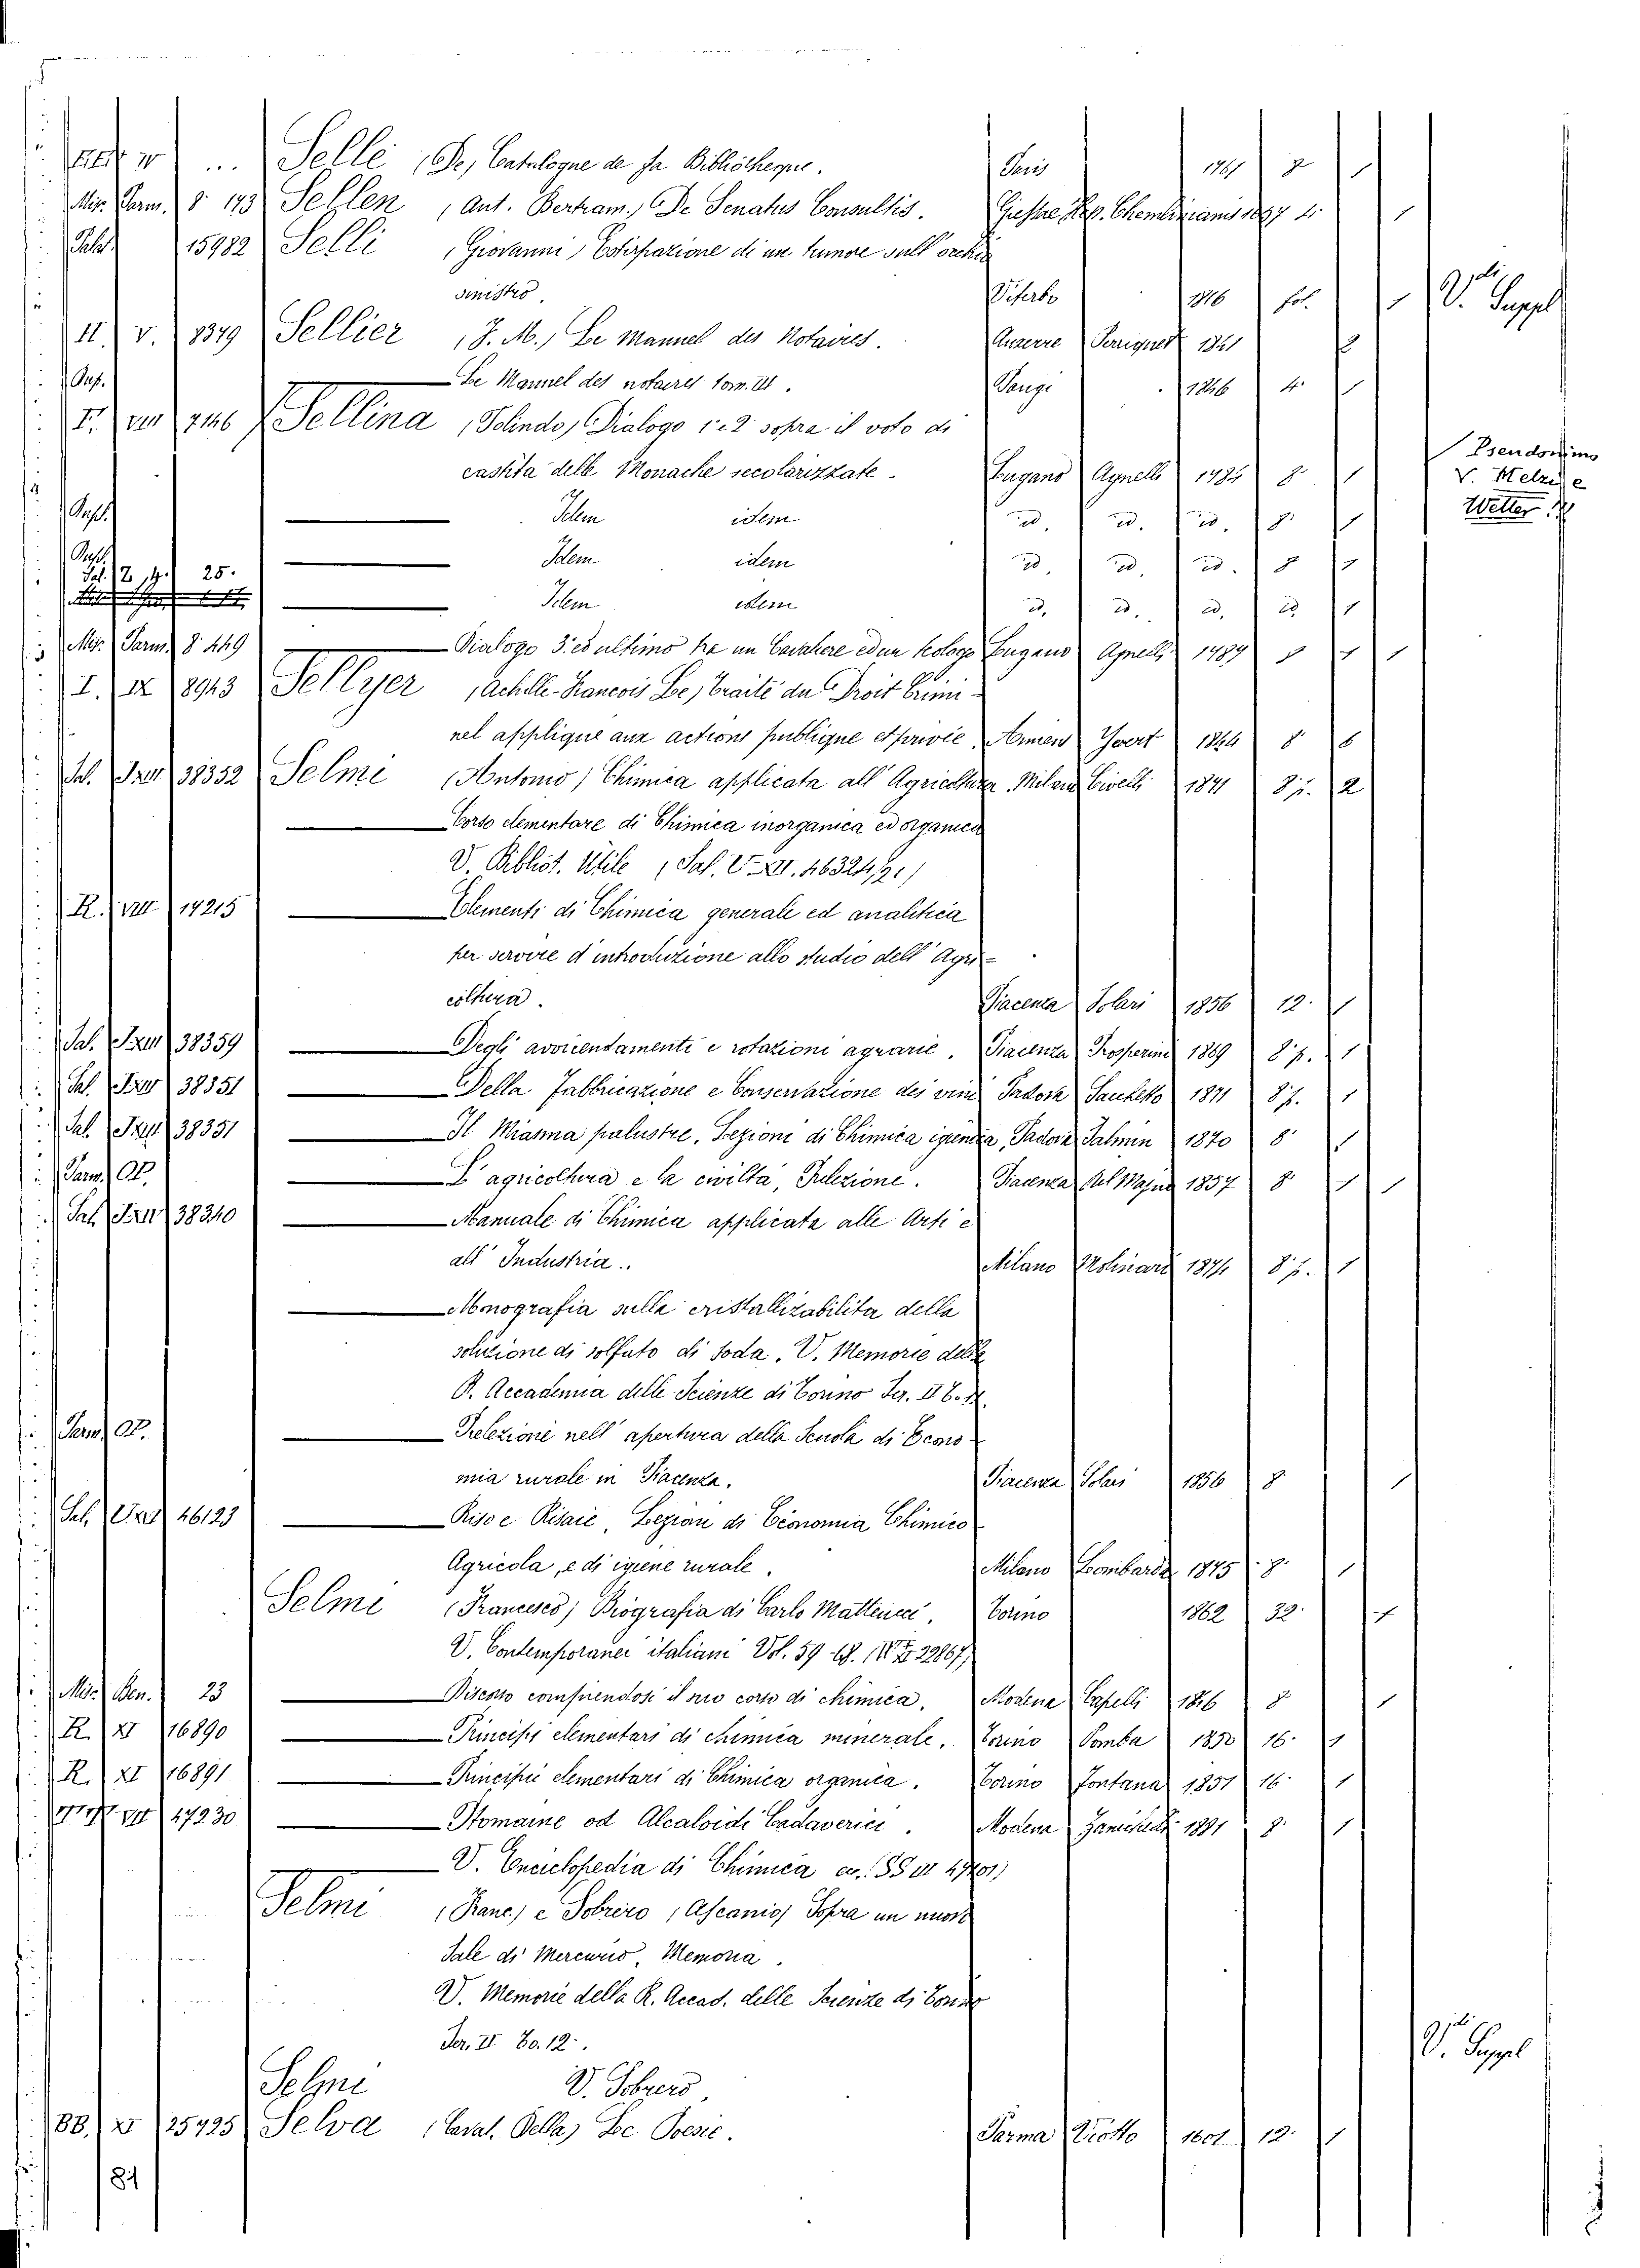 Selle (De) Catalogue de sa Bibliotheque. Paris 1761 8
Misc. Parm. 8° 143 Sellen (Ant. Bertram.) De Senatus Consultis. Chemlinianis 1697 4
15982 Selli (Giovanni) Estirpazione di un tumore sull'occhio
sinistro. Viterbo 1816 fol. V. Suppl.
H. V. 1349 Sellier (J. M.) Le Manuel des Notaires. Auxerre Perriquet 1841
Le Manuel des notaires tom. III. 1846 4°
Sellina (Selinda) Dialogo 1. e 2 sopra il voto di
castità delle Monache secolarizzate. Lugano Agnelli 1784 8 1
Pseudonimo
V. Melzi e
Weller
Idem idem id. id. id. 8° 1
25. Idem idem id. id. id. 8 1
Idem idem id. id. id. id. 1
Misc. Parm. 8° 449 Dialogo 3° ed ultimo tra un Cavaliere ed un teologo Lugano Agnelli 1784 8 1 1
I. IX 8943 Sellyer (Achille-François Le) Traité du Droit Crimi-
nel appliqué aux actions publique et privée. Amiens Yvert 1844 8° 6
Sal. 38352 Selmi (Antonio) Chimica applicata all'Agricoltura Milano Civelli 1871 8° p. 2
Corso elementare di Chimica inorganica ed organica
V. Bibliot. Utile (Sal. V. XII. 46324,91)
R. VIII 14215 Elementi di Chimica generale ed analitica
per servire d'introduzione allo studio dell'Agri-
coltura. Piacenza Solari 1856 12. 1
Sal. 38359 Degli avvicendamenti e rotazioni agrarie. Piacenza Prosperini 1869 8° p. 1
Sal. 38351 Della Fabbricazione e Conservazione dei vini Padova Sacchetto 1871 8° p. 1
Sal. 38351 Il Miasma palustre, Lezioni di Chimica igienica, Padova Salmin 1870 8° 1
Parm. Op. L'agricoltura e la civiltà, Prelezione. Piacenza Del Majno 1857 8° 1 1
Sal. 38340 Manuale di Chimica applicata alle Arti e
all'Industria. Milano Molinari 1874 8° p. 1
Monografia sulla cristallizabilità della
soluzione di solfato di soda. V. Memorie della
R. Accademia delle Scienze di Torino Ser. II T.
Parm. Op. Prelezione nell'apertura della Scuola di Econo-
mia rurale in Piacenza. Piacenza Solari 1856 8 1
Sal. 46123 Riso e Risaie, Lezioni di Economia Chimico
Agricola, e di igiene rurale. Milano Lombarda 1875 8° 1
Selmi (Francesco) Biografia di Carlo Matteucci. Torino 1862 32° 1
V. Contemporanei italiani Vol. 59 22867)
Misc. Ben. 23 Discorso compiendosi il suo corso di chimica. Modena Capelli 1846 8° 1
R. XI 16890 Principii elementari di chimica minerale. Torino Pomba 1850 16° 1
R. XI 16891 Principii elementari di Chimica organica. Torino Fontana 1851 16° 1
47230 Ptomaine od Alcaloidi Cadaverici. Modena Zanichelli 1881 8° 1
V. Enciclopedia di Chimica ec.
Selmi (Franc.) e Sobrero (Ascanio) Sopra un nuovo
Sale di Mercurio, Memoria.
V. Memorie della R. Accad. delle Scienze di Torino
Ser. II To. 12.
V. Suppl
Selmi V. Sobrero.
BB. XI 25425 Selva (Caval. Della) Le Poesie. Parma Viotto 1601 12° 1
84